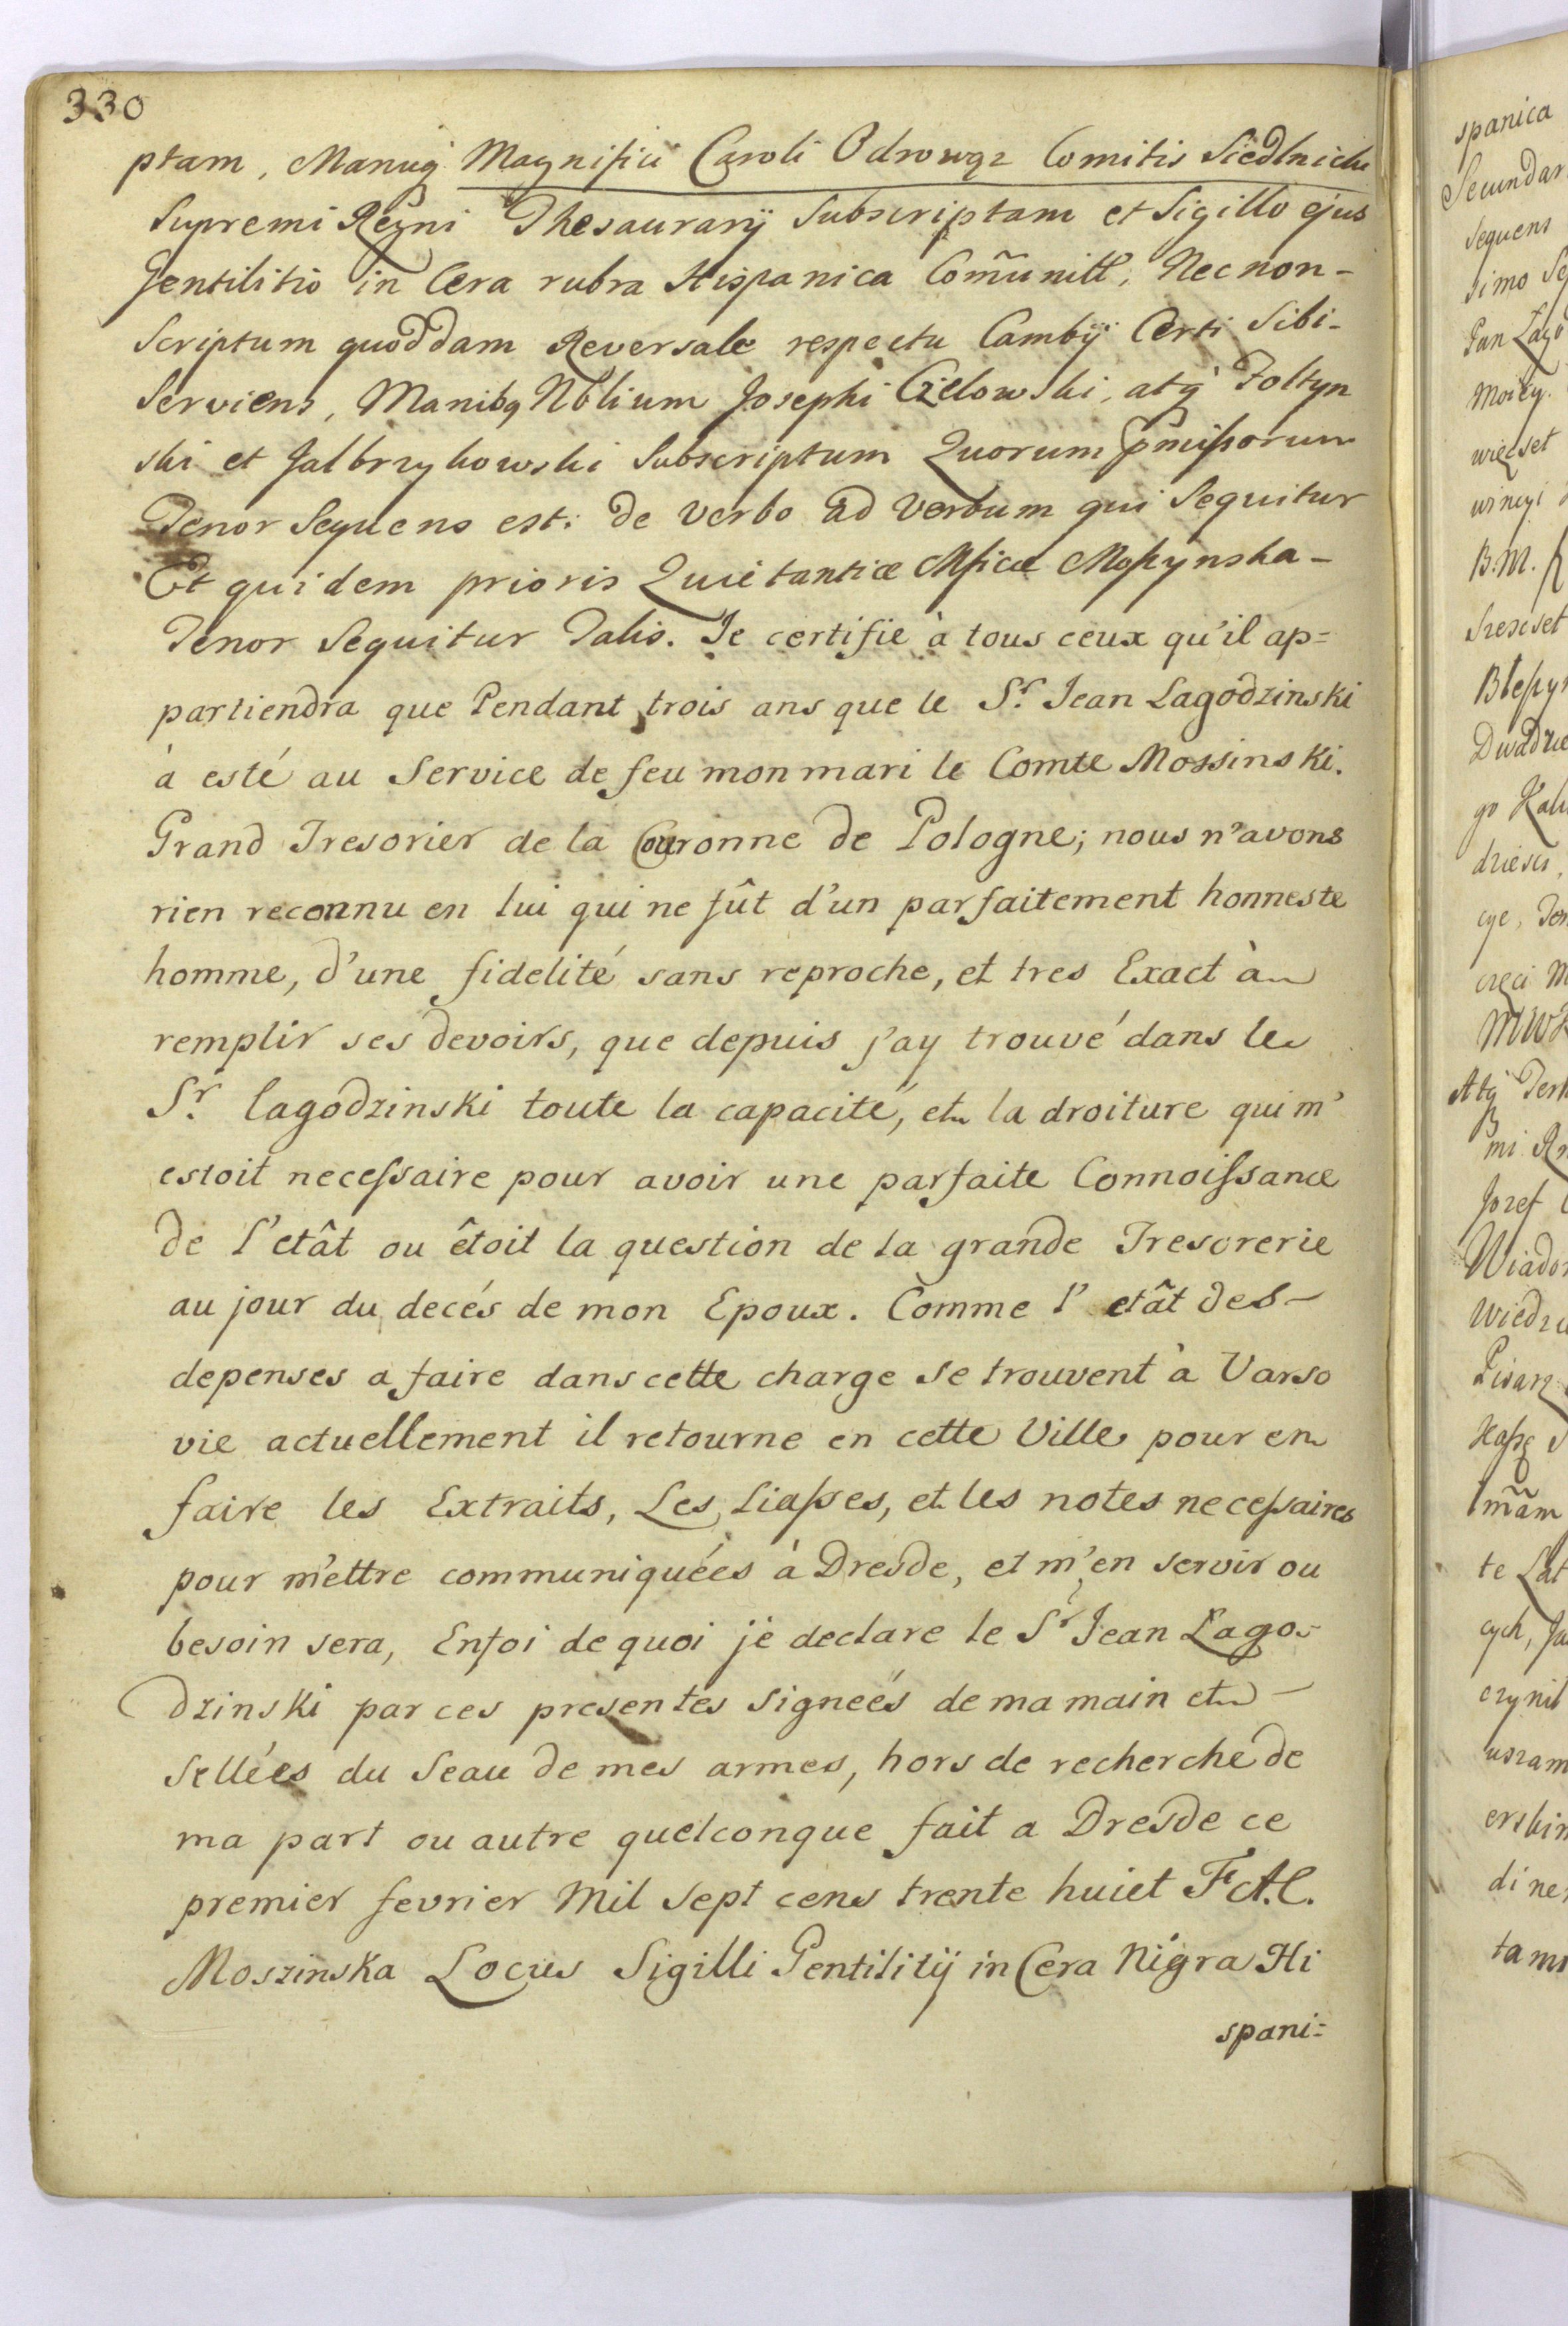 330
ptam, Manuq́ Magnifici Caroli Odrowąz Comitis Siedlnicki
Supremi Regni Thesaurarÿ Subscriptam et Sigillo ejus
Gentilitio in Cera rubra Hispanica Com̃unitt, Nec non-
Scriptum quoddam Reversale respectu Cambÿ Certi Sibi-
Serviens, Manibq Nblium Josephi Czelowski, atq́ Foltyn
ski et Jalbrzykowski Subscriptum Quorum p̃mißorum
Tenor Sequens est: de verbo ad Verbum qui Sequitur
Et quidem prioris Quietantiæ Mficæ Moßynska-
Tenor Sequitur Talis. Je certifie à tous ceux qu'il ap=
partiendra que Pendant trois ans que le Sr. Jean Lagodzinski
à esté au Service de feu mon mari le Comte Mossinski.
Grand Tresorier de la Couronne de Pologne; nous n'avons
rien reconnu en lui qui ne fût d'un parfaitement honneste
homme, d'une fidelité sans reproche, et tres Exact à
remplir ses devoirs, que depuis j'ay trouvé dans le
Sr. Lagodzinski toute la capacité, et la droiture qui m'
estoit necessaire pour avoir une parfaite Connoissance
de l'etât ou êtoit la question de la grande Tresorerie
au jour du decés de mon Epoux. Comme l' etât des-
depenses a faire dans cette charge se trouvent à Varso
vie actuellement il retourne en cette Ville pour en
faire les Extraits, Les Liaßes, et les notes necessaires
pour m'ettre communiquées à Dresde, et m'en servir ou
besoin sera, Enfoi de quoi je declare le Sr Jean Lago-
dzinski par ces presentes signeés de ma main et-
sellées du Seau de mes armes, hors de recherche de
ma part ou autre quelconque fait a Dresde ce
premier fevrier Mil Sept cens trente huiet F A.C.
Moszinska Locus Sigilli Gentilitÿ in Cera Nigra Hi
spani=
spanica
Secundar
Sequens
simo
Pan Lago
więcset
B.M.
go
Jozef
Wiado
Pisarz
te
cych,
czynił
di ne